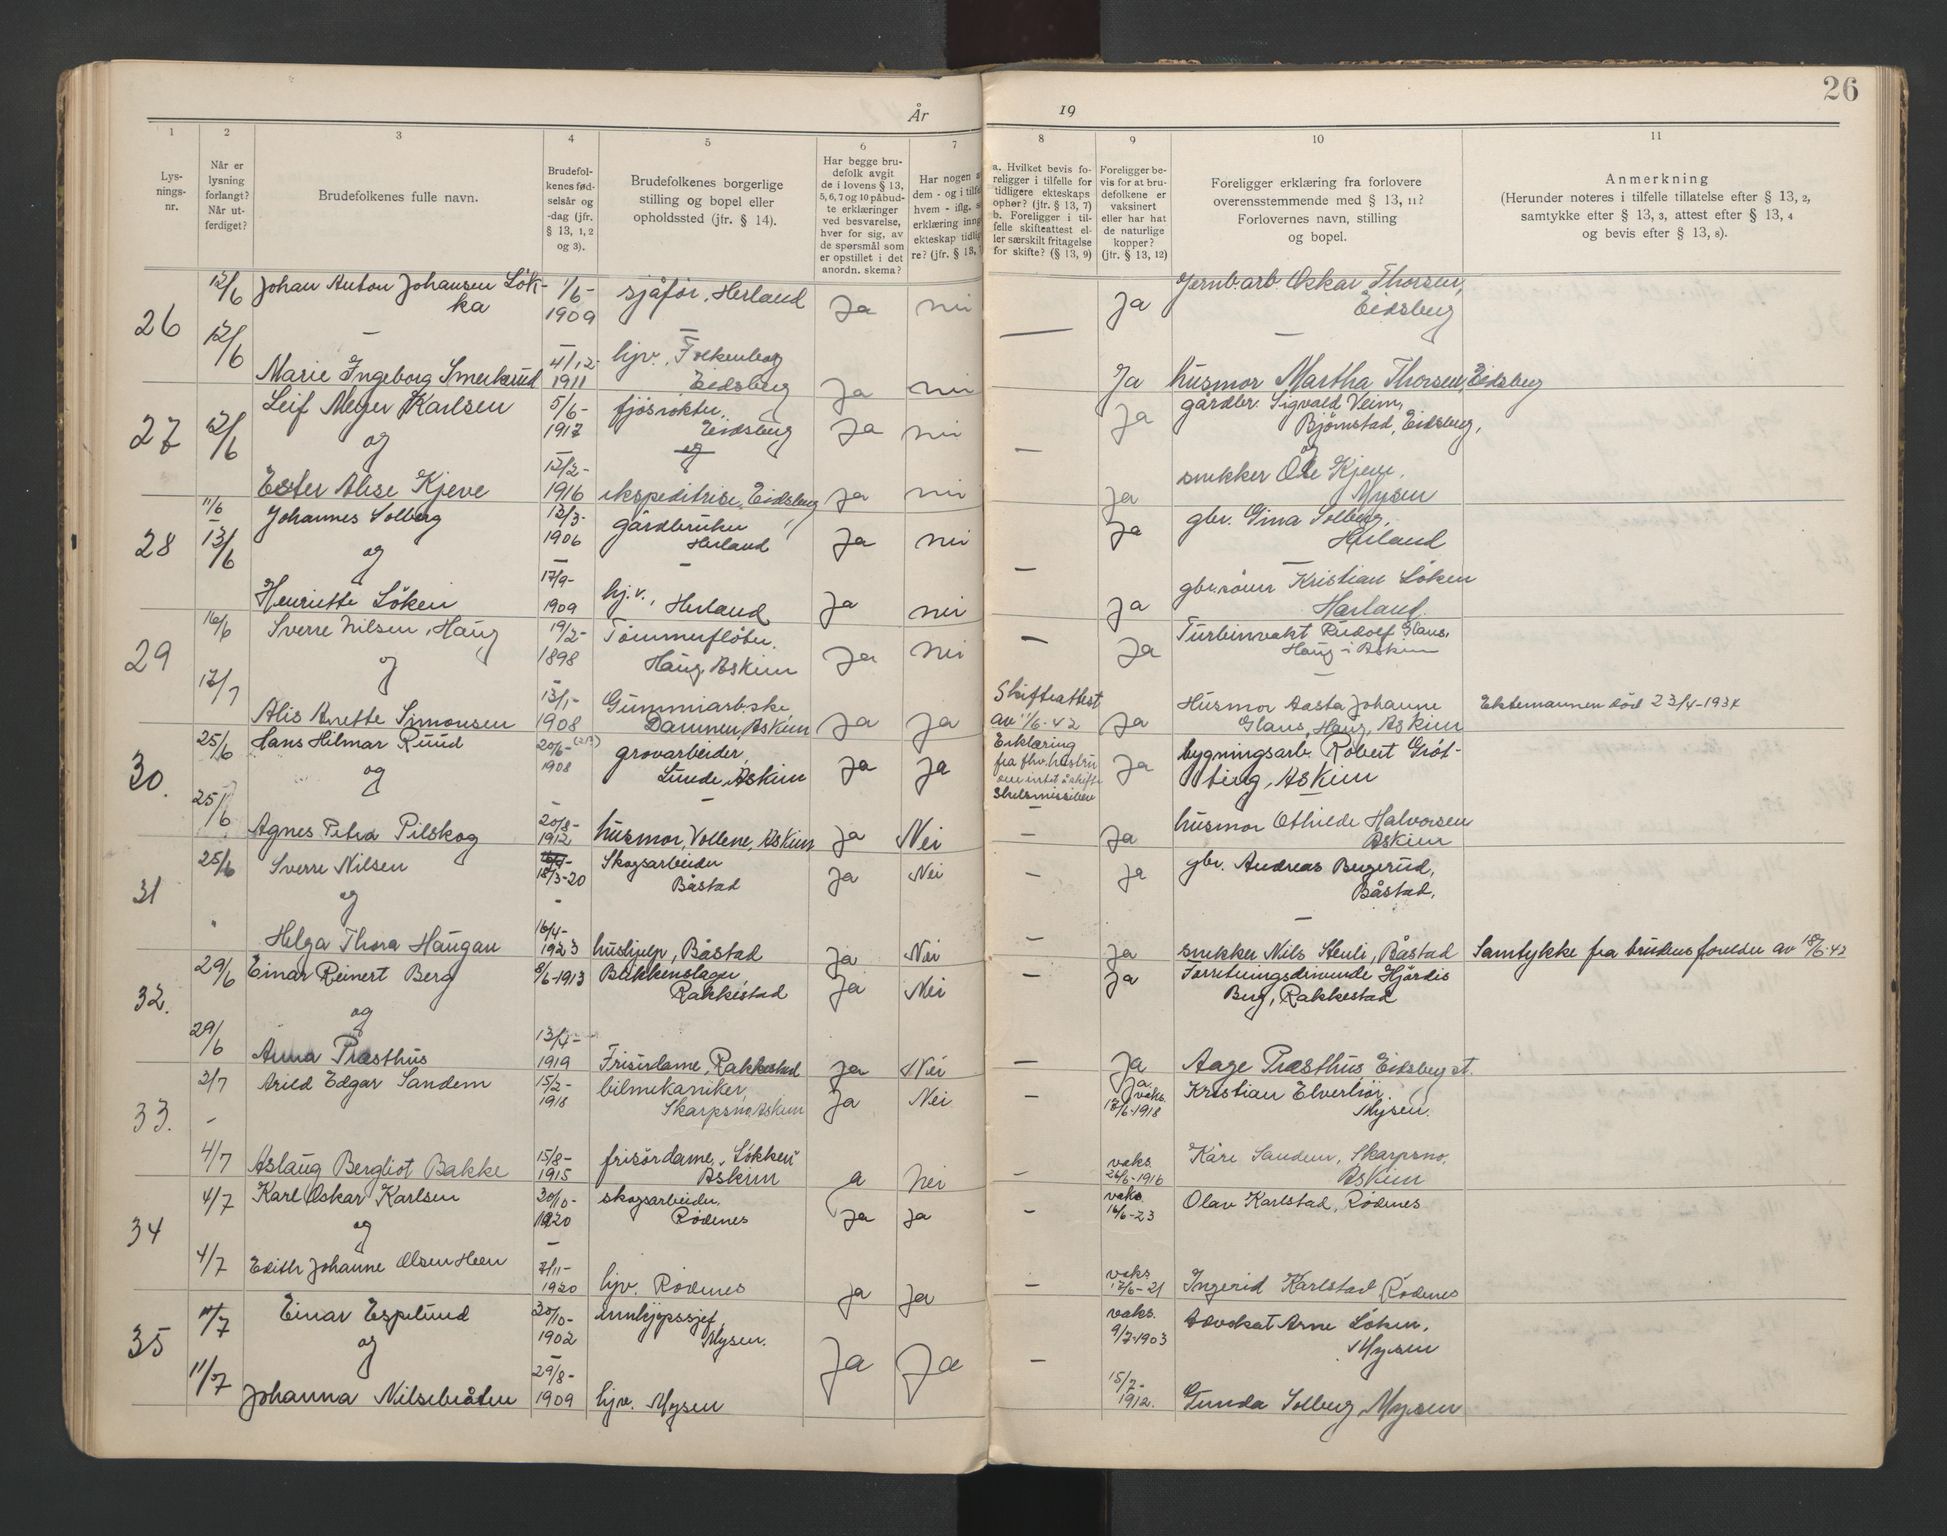 26
År
19
1 2 3 4 5 6 7 8 9 10 11
Lys-
nings-
nr.
Når er
lysning
forlangt?
Når ut-
ferdiget?
Brudefolkenes fulle navn.
Brudefol-
kenes fød-
selsår og
-dag (jfr.
§ 13, 1, 2
og 3).
Brudefolkenes borgerlige
stilling og bopel eller
opholdssted (jfr. § 14).
Har begge bru-
defolk avgit
de i lovens § 13,
5, 6, 7 og 10 påbud-
te erklæringer
ved besvarelse,
hver for sig, av
de spørsmål som
er opstillet i det
anordn. skema?
Har nogen a
dem - og i tilfel
hvem - iflg. s
erklæring inng
ekteskap tidlig
re? (jfr. § 13, 7
a. Hvilket bevis fo-
religger i tilfelle for
tidligere ekteskaps
opher? (jfr. § 13, 7)
b. Foreligger i til-
felle skifteattest el-
ler særskilt fritagelse
for skifte? (§ 13, 9)
Foreligger be-
vis for at bru-
defolkene er
vaksinert
eller har hat
de naturlige
kopper?
(jfr. § 13, 12)
Foreligger erklæring fra forlovere
overensstemmende med § 13, 11?
Forlovernes navn, stilling
og bopel.
Anmerkning
(Herunder noteres i tilfelle tillatelse efter § 13, 2,
samtykke efter § 13, 3, attest efter § 13, 4
og bevis efter § 13, 8).
26 12/6 Johan Anton Johansen Løk-
ka 1/6-
1909 sjåfør, Herland Ja nei — Ja Jernb.arb Oskar Thorsen,
Eidsberg
12/6 – Marie Ingeborg Smerkerud 4/12-
1911 hjv. Folkenborg
Eidsberg Ja nei Ja husmor Martha Thorsen, Eidsberg
27 12/6 Leif Meyer Karlsen 5/6-
1917 fjøsrøkter,
Eidsberg Ja nei — Ja gårdbr. Sigvald Veim,
Bjørnstad, Eidsberg,
og og
Ester Alise Kjeve 12/2-
1916 ekspeditrise, Eidsberg Ja nei Ja snekker Ole Kjeve,
Mysen
28 11/6 Johannes Solberg 12/3-
1906 gårdbruker
Herland Ja nei — Ja gbr. Gina Solberg,
Herland
13/6 og
Henriette Løken 17/9-
1909 hj.v., Herland Ja nei Ja gbr.sønn Kristian Løken
Harland
29 16/6 Sverre Nilsen, Haug 19/2-
1898 Tømmerfløter,
Haug, Askim Ja nei — Ja Turbinvakt Rudolf Glans,
Haug i Askim
og
17/7 Alis Anette Simonsen 13/1-
1908 Gummiarb.ske
Dammen, Askim Ja Ja Skifteattest
av 11/6-42 Ja Husmor Aasta Johanne
Glans, Haug, Askim Ektemannen død 23/4-1937
30. 25/6 Hans Hilmar Ruud 20/6-
1908 grovarbeider,
Lunde, Askim Ja Ja Erklæring
fra fhv. hustru
om intet å skifte
Skilsmissebev Ja bygningsarb. Robert Grøt-
ting, Askim
og
25/6 Agnes Petra Pilskog 20/8-
1912 husmor, Vollene, Askim Ja Nei — Ja husmor Othilde Halvorsen
Askim
31 25/6 Sverre Nilsen 18/3-20 Skogsarbeider
Båstad Ja Nei — Ja gbr. Andreas Bergerud,
Båstad,
og
" Helga Thora Haugan 16/4-
1923 hushjelp, Båstad Ja Nei — Ja snekker Nils Stenli, Båstad Samtykke fra brudens foreldre av 18/6-42
32. 29/6 Einar Reinert Berg 8/6-1913 Blikkenslager
Rakkestad Ja Nei — Ja Forretningsdrivende Hjørdis
Berg, Rakkestad
og
29/6 Anna Præsthus 13/4-
1919 Frisørdame, Rakkestad Ja Nei — Ja Aage Præsthus, Eidsberg st.
33. 2/7 Arild Edgar Sandem 15/2-
1918 bilmekaniker,
Skarpsno, Askim Ja Nei — Ja.
vaks.
17/6-1918 Kristian Elverhöi.
Mysen.
–
4/7 Aslaug Bergliot Bakke 15/8-
1915 frisördame, "Løkken"
Askim a nei — vaks.
26/6-1916 Kåre Sandem, Skarpsno,
Askim
34 4/7 Karl Oskar Karlsen 30/10-
1920 skogsarbeider,
Rødenes Ja Ja — vaks.
16/6-23 Olav Karlstad, Rødenes
og
4/7 Edith Johanne Olsen Heen 7/11-
1920 hjv. Rødenes Ja Ja — vaks
17/6-21 Ingerid Karlstad Rødenes
35 11/7 Einar Espelund 30/10-
1902 innkjøpssjef,
Mysen. Ja Ja — vaks.
9/7-1903 Advokat Arne Løken,
Mysen
og
11/7 Johanna Nilsebråten 29/8-
1909 hjv. Mysen 15/7-
1912. Gunda Solberg, Mysen